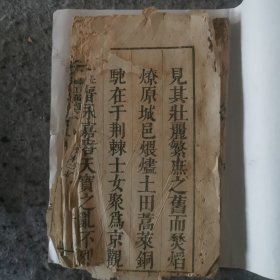 見其壯麗繁庶之舊而焚熠
燎原城邑煨燼土田蒿萊銅
駝在于荆棘士女聚爲京觀
晋永嘉唐天寶之亂不